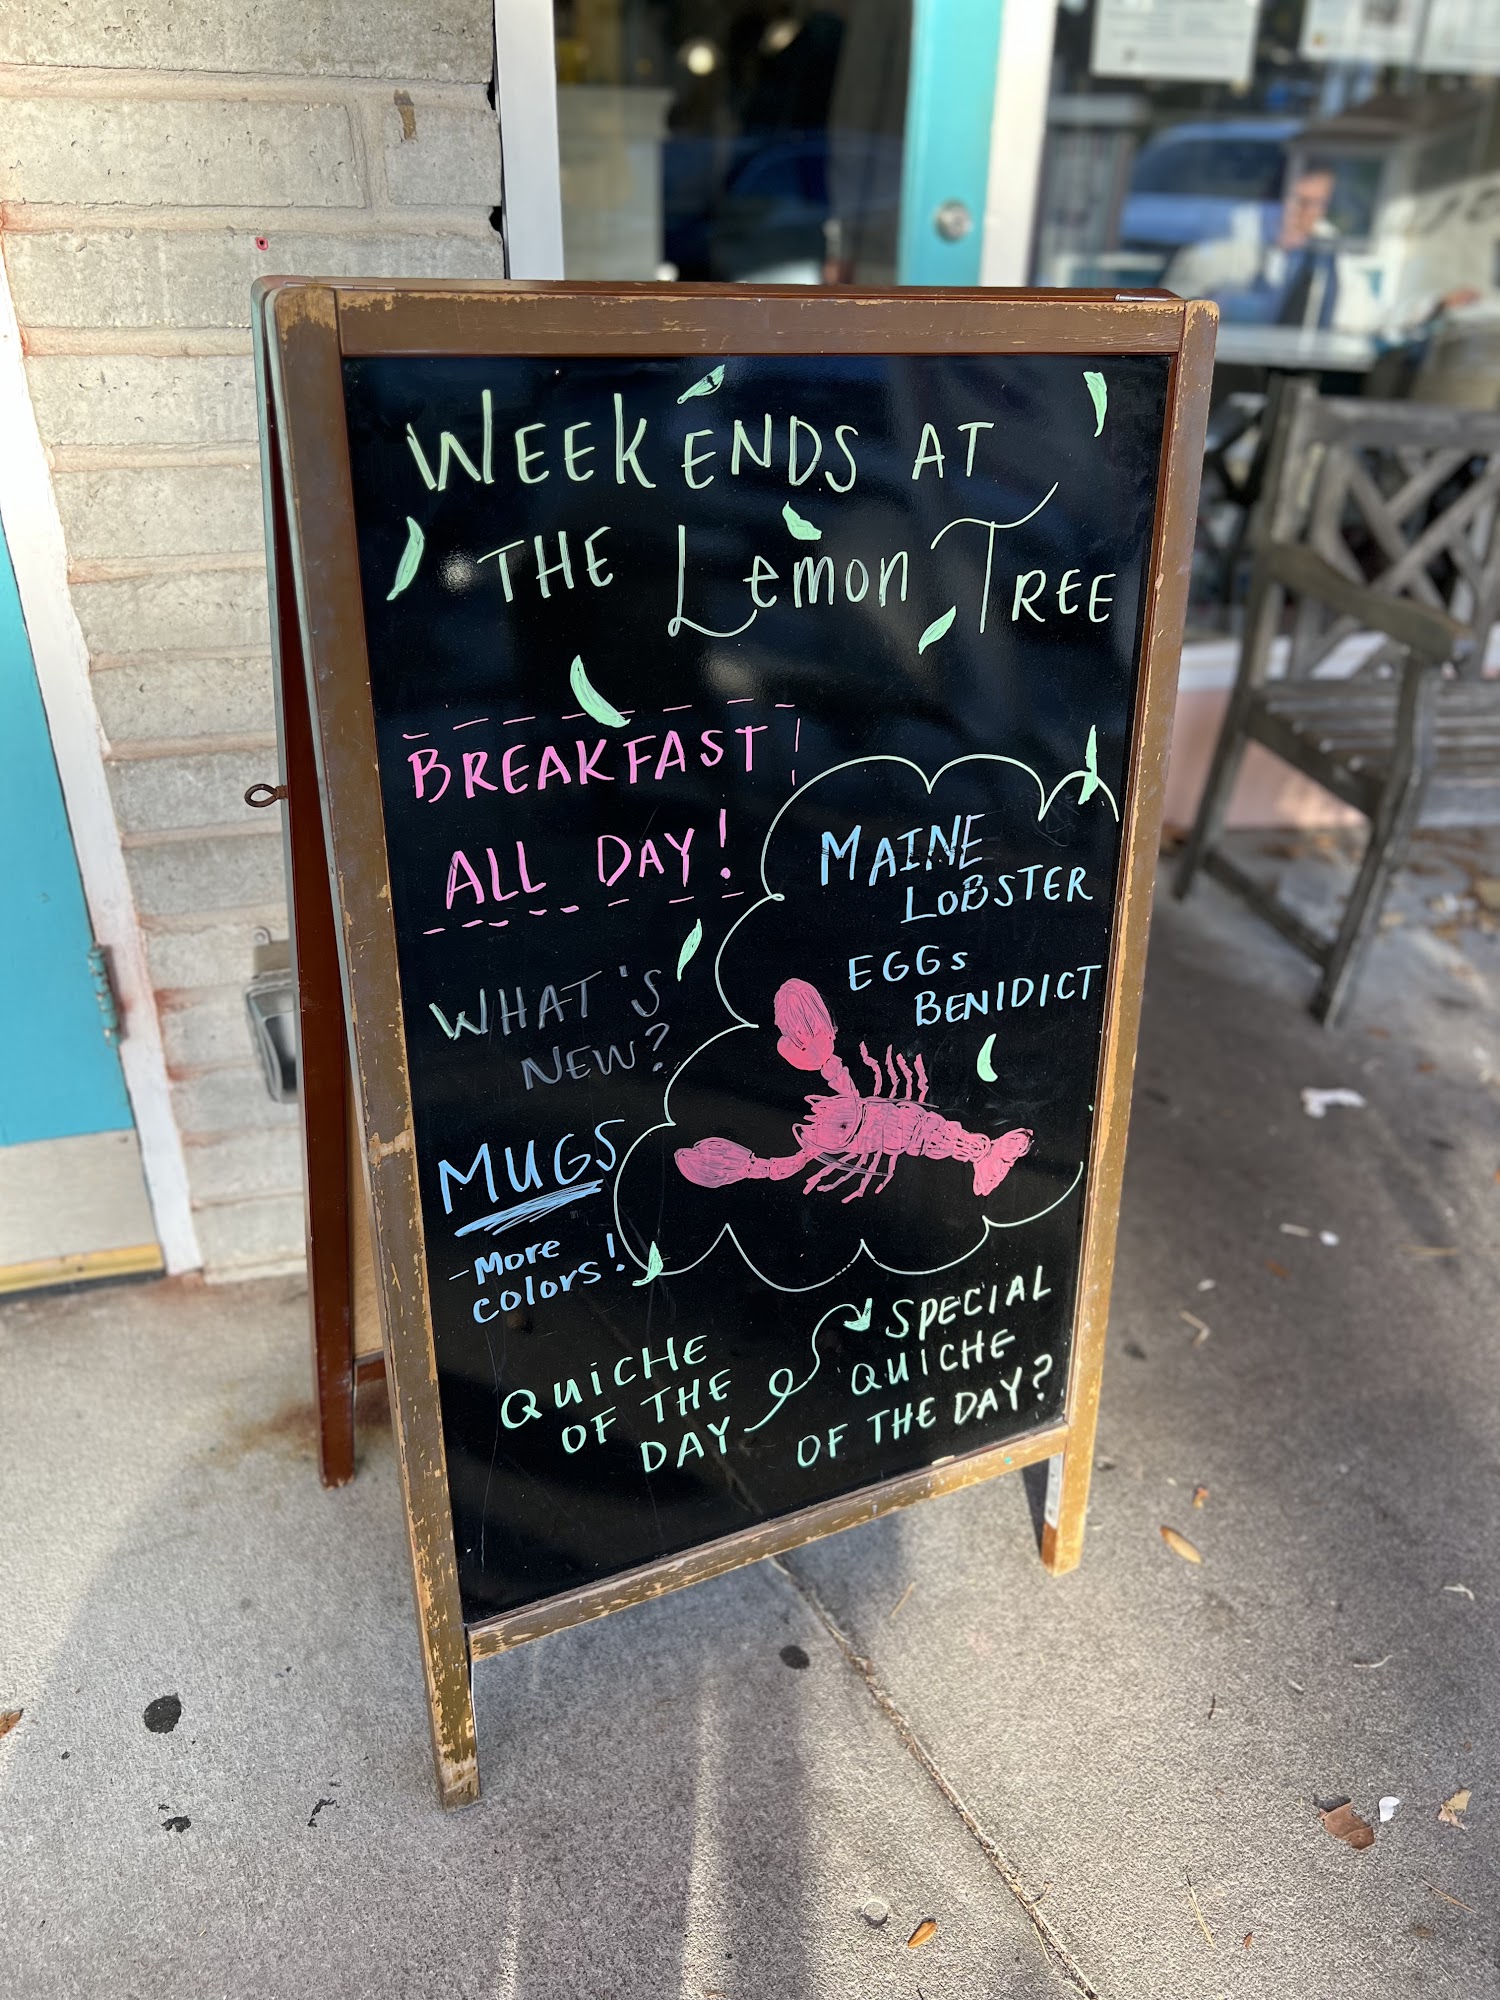 WEEKENDS AT
THE Lemon TREE
BREAKFAST
ALL DAY!
WHAT'S
NEW?
MAINE
LOBSTER
EGGs
BENIDICT
MUGS
-More
colors!
QUiCHE
OF THE
DAY
SPECIAL
QUICHE
OF THE DAY?